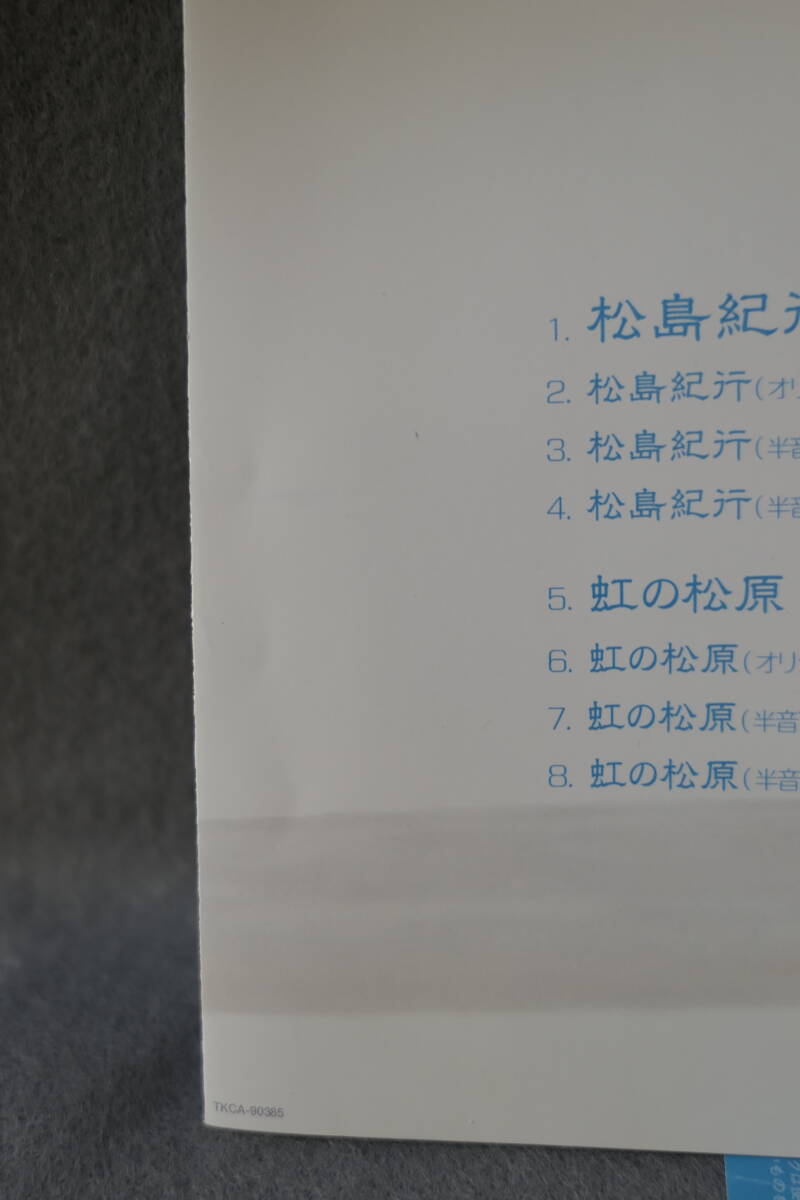 1. 松島紀行
2. 松島紀行(オリ
3. 松島紀行(半音
4. 松島紀行(半音
5. 虹の松原
6. 虹の松原(オリ
7. 虹の松原(半音
8. 虹の松原(半音
TKCA-90385